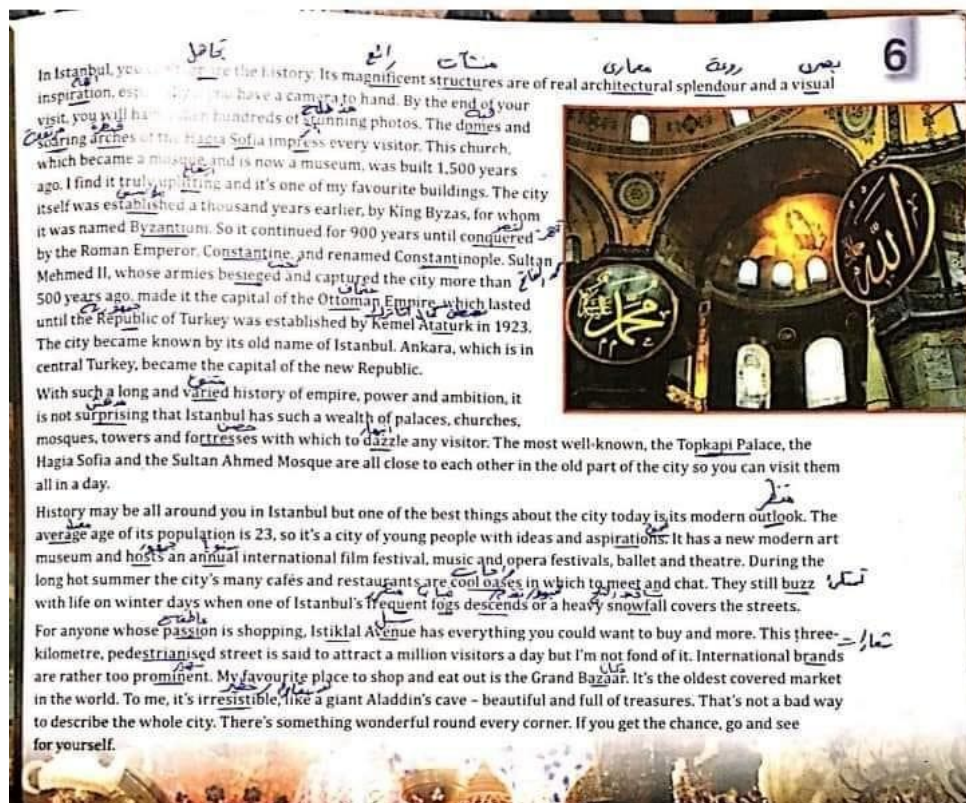 6
In Istanbul, you the history. Its magnificent structures are of real architectural splendour and a visual
inspiration, have a camera to hand. By the end of your
visit, you will hundreds of stunning photos. The domes and
soaring arches of the Hagia Sofia impress every visitor. This church,
which became a mosque and is now a museum, was built 1,500 years
ago. I find it truly uplifting and it's one of my favourite buildings. The city
itself was established a thousand years earlier, by King Byzas, for whom
it was named Byzantium. So it continued for 900 years until conquered
by the Roman Emperor, Constantine, and renamed Constantinople. Sultan
Mehmed II, whose armies besieged and captured the city more than
500 years ago, made it the capital of the Ottoman Empire, which lasted
until the Republic of Turkey was established by Kemel Ataturk in 1923.
The city became known by its old name of Istanbul. Ankara, which is in
central Turkey, became the capital of the new Republic.
With such a long and varied history of empire, power and ambition, it
is not surprising that Istanbul has such a wealth of palaces, churches,
mosques, towers and fortresses with which to dazzle any visitor. The most well-known, the Topkapi Palace, the
Hagia Sofia and the Sultan Ahmed Mosque are all close to each other in the old part of the city so you can visit them
all in a day.
History may be all around you in Istanbul but one of the best things about the city today is its modern outlook. The
average age of its population is 23, so it's a city of young people with ideas and aspirations. It has a new modern art
museum and hosts an annual international film festival, music and opera festivals, ballet and theatre. During the
long hot summer the city's many cafés and restaurants are cool oases in which to meet and chat. They still buzz
with life on winter days when one of Istanbul's frequent fogs descends or a heavy snowfall covers the streets.
For anyone whose passion is shopping, Istiklal Avenue has everything you could want to buy and more. This three-
kilometre, pedestrianised street is said to attract a million visitors a day but I'm not fond of it. International brands
are rather too prominent. My favourite place to shop and eat out is the Grand Bazaar. It's the oldest covered market
in the world. To me, it's irresistible, like a giant Aladdin's cave – beautiful and full of treasures. That's not a bad way
to describe the whole city. There's something wonderful round every corner. If you get the chance, go and see
for yourself.
الله
محمد
تجاهل
رائع
منشآت
معماري
روعة
بصري
منظر